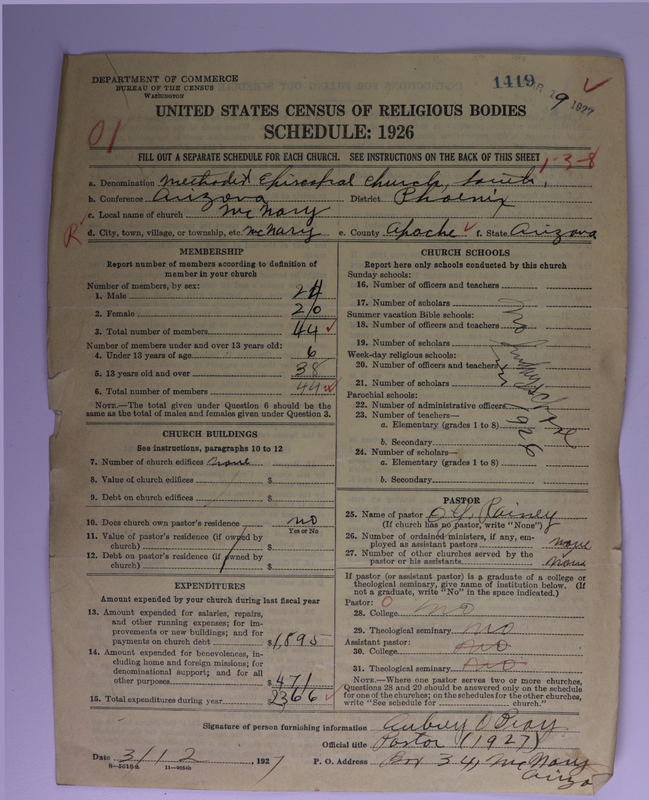 DEPARTMENT OF COMMERCE
BUREAU OF THE CENSUS
WASHINGTON
1419
UNITED STATES CENSUS OF RELIGIOUS BODIES
SCHEDULE: 1926
01
FILL OUT A SEPARATE SCHEDULE FOR EACH CHURCH. SEE INSTRUCTIONS ON THE BACK OF THIS SHEET
1-3-8
a. Denomination Methodist Episcopal Church, South.
b. Conference Arizona District Phoenix
c. Local name of church McNary
R d. City, town, village, or township, etc. McNary e. County Apache f. State Arizona
MEMBERSHIP
Report number of members according to definition of
member in your church
Number of members, by sex:
1. Male 24
2. Female 20
3. Total number of members 44
Number of members under and over 13 years old:
4. Under 13 years of age 6
5. 13 years old and over 38
6. Total number of members 44
NOTE.—The total given under Question 6 should be the
same as the total of males and females given under Question 3.
CHURCH BUILDINGS
See instructions, paragraphs 10 to 12
7. Number of church edifices none
8. Value of church edifices $
9. Debt on church edifices $
10. Does church own pastor's residence no
Yes or No
11. Value of pastor's residence (if owned by
church) $
12. Debt on pastor's residence (if owned by
church) $
EXPENDITURES
Amount expended by your church during last fiscal year
13. Amount expended for salaries, repairs,
and other running expenses; for im-
provements or new buildings; and for
payments on church debt $1,895
14. Amount expended for benevolences, in-
cluding home and foreign missions; for
denominational support; and for all
other purposes $471
15. Total expenditures during year $2366
CHURCH SCHOOLS
Report here only schools conducted by this church
Sunday schools:
16. Number of officers and teachers
17. Number of scholars
Summer vacation Bible schools:
18. Number of officers and teachers
19. Number of scholars
Week-day religious schools:
20. Number of officers and teachers
21. Number of scholars
Parochial schools:
22. Number of administrative officers
23. Number of teachers—
a. Elementary (grades 1 to 8)
b. Secondary
24. Number of scholars—
a. Elementary (grades 1 to 8)
b. Secondary
No Sunday School
in 1926
PASTOR
25. Name of pastor Rainey
(If church has no pastor, write "None")
26. Number of ordained ministers, if any, em-
ployed as assistant pastors none
27. Number of other churches served by the
pastor or his assistants none
If pastor (or assistant pastor) is a graduate of a college or
theological seminary, give name of institution below. (If
not a graduate, write "No" in the space indicated.)
Pastor: 0
28. College no
29. Theological seminary no
Assistant pastor:
30. College no
31. Theological seminary no
NOTE.—Where one pastor serves two or more churches,
Questions 28 and 29 should be answered only on the schedule
for one of the churches; on the schedules for the other churches,
write "See schedule for church."
Signature of person furnishing information Aubrey C Bray
Official title Pastor (1927)
Date 3/12, 1927 P. O. Address Box 34, McNary
Arizo
8—5518a 11—9054b